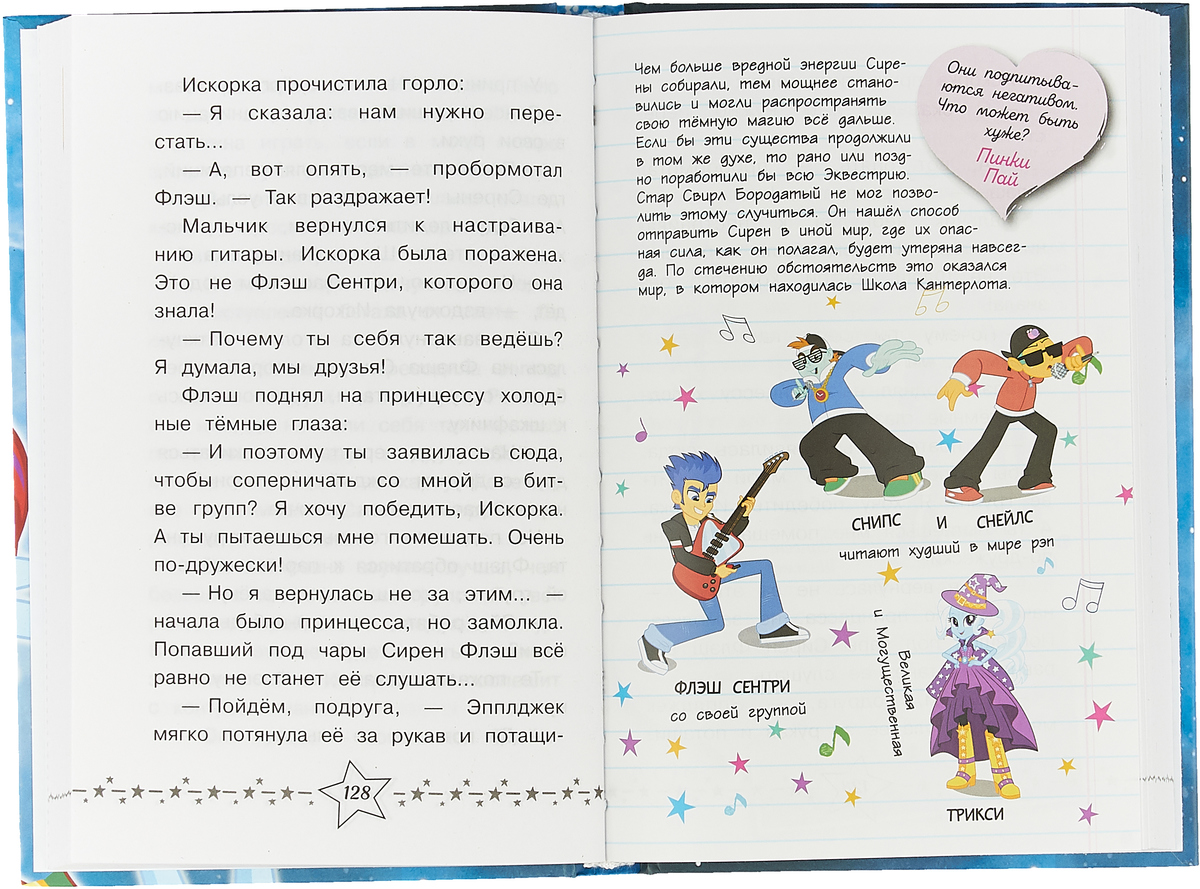 Искорка прочистила горло:
— Я сказала: нам нужно пере-
стать...
— А, вот опять, — пробормотал
Флэш. — Так раздражает!
Мальчик вернулся к настраива-
нию гитары. Искорка была поражена.
Это не Флэш Сентри, которого она
знала!
— Почему ты себя так ведёшь?
Я думала, мы друзья!
Флэш поднял на принцессу холод-
ные тёмные глаза:
— И поэтому ты заявилась сюда,
чтобы соперничать со мной в бит-
ве групп? Я хочу победить, Искорка.
А ты пытаешься мне помешать. Очень
по-дружески!
— Но я вернулась не за этим... —
начала было принцесса, но замолкла.
Попавший под чары Сирен Флэш всё
равно не станет её слушать...
— Пойдём, подруга, — Эпплджек
мягко потянула её за рукав и потащи-
128
Чем больше вредной энергии Сире-
ны собирали, тем мощнее стано-
вились и могли распространять
свою тёмную магию всё дальше.
Если бы эти существа продолжили
в том же духе, то рано или позд-
но поработили бы всю Эквестрию.
Стар Свирл Бородатый не мог позво-
лить этому случиться. Он нашёл способ
отправить Сирен в иной мир, где их опас-
ная сила, как он полагал, будет утеряна навсег-
да. По стечению обстоятельств это оказался
мир, в котором находилась Школа Кантерлота.
Они подпитыва-
ются негативом.
Что может быть
хуже?
Пинки
Пай
СНИПС И СНЕЙЛС
читают худший в мире рэп
ФЛЭШ СЕНТРИ
со своей группой
Великая
и Могущественная
ТРИКСИ